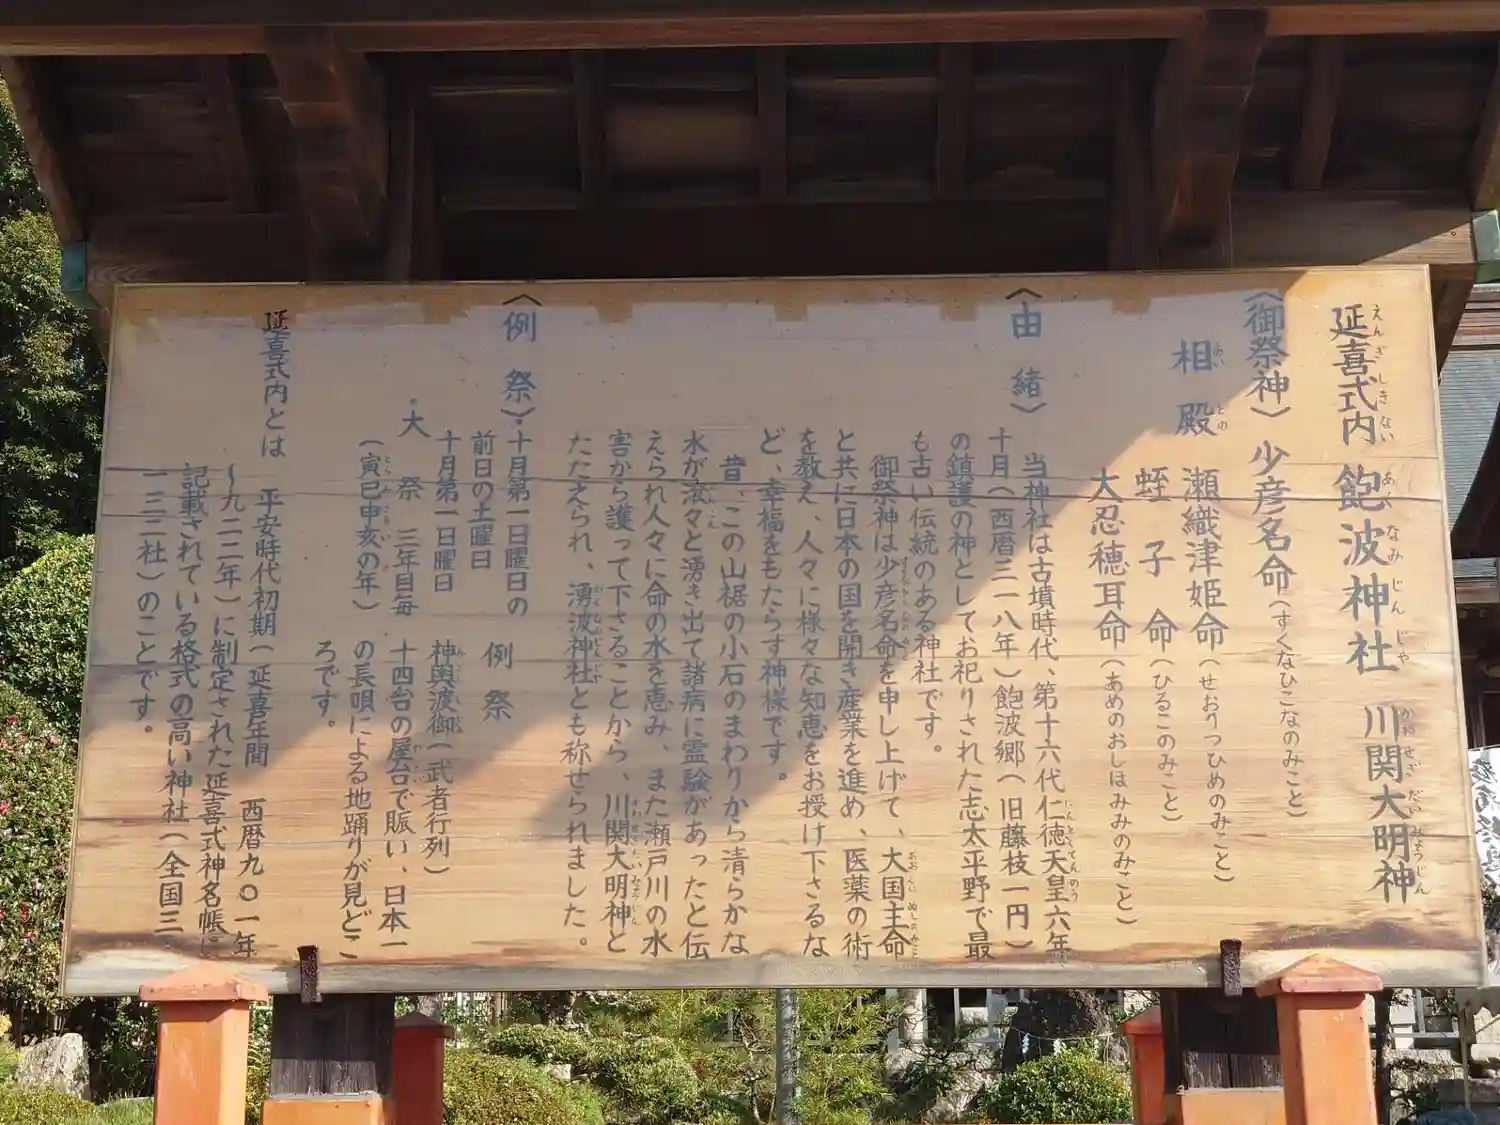 延喜式内 飽波神社 川関大明神
えんぎしきない あくなみじんじゃ かわせぎだいみょうじん
〈御祭神〉 少彦名命(すくなひこなのみこと)
相殿 瀬織津姫命(せおりつひめのみこと)
あいどの
蛭子命(ひるこのみこと)
大忍穂耳命(あめのおしほみみのみこと)
〈由緒〉
当神社は古墳時代、第十六代仁徳天皇六年
にんとくてんのう
十月(西暦三一八年)飽波郷(旧藤枝一円)
の鎮護の神としてお祀りされた志太平野で最
も古い伝統のある神社です。
御祭神は少彦名命を申し上げて、大国主命
と共に日本の国を開き産業を進め、医薬の術
を教え、人々に様々な知恵をお授け下さるな
ど、幸福をもたらす神様です。
昔、この山裾の小石のまわりから清らかな
水が滾々と湧き出て諸病に霊験があったと伝
こん
えられ人々に命の水を恵み、また瀬戸川の水
害から護って下さることから、川関大明神と
かわせぎだいみょうじん
たたえられ、湧波神社とも称せられました。
〈例祭〉・十月第一日曜日の 例祭
前日の土曜日
十月第一日曜日 神輿渡御(武者行列)
・大祭 三年目毎 十四台の屋台で賑い、日本一
(寅巳申亥の年) の長唄による地踊りが見どこ
とらみさるい
ろです。
延喜式内とは 平安時代初期(延喜年間 西暦九〇一年
〜九二二年)に制定された延喜式神名帳に
記載されている格式の高い神社(全国三
一三二社)のことです。